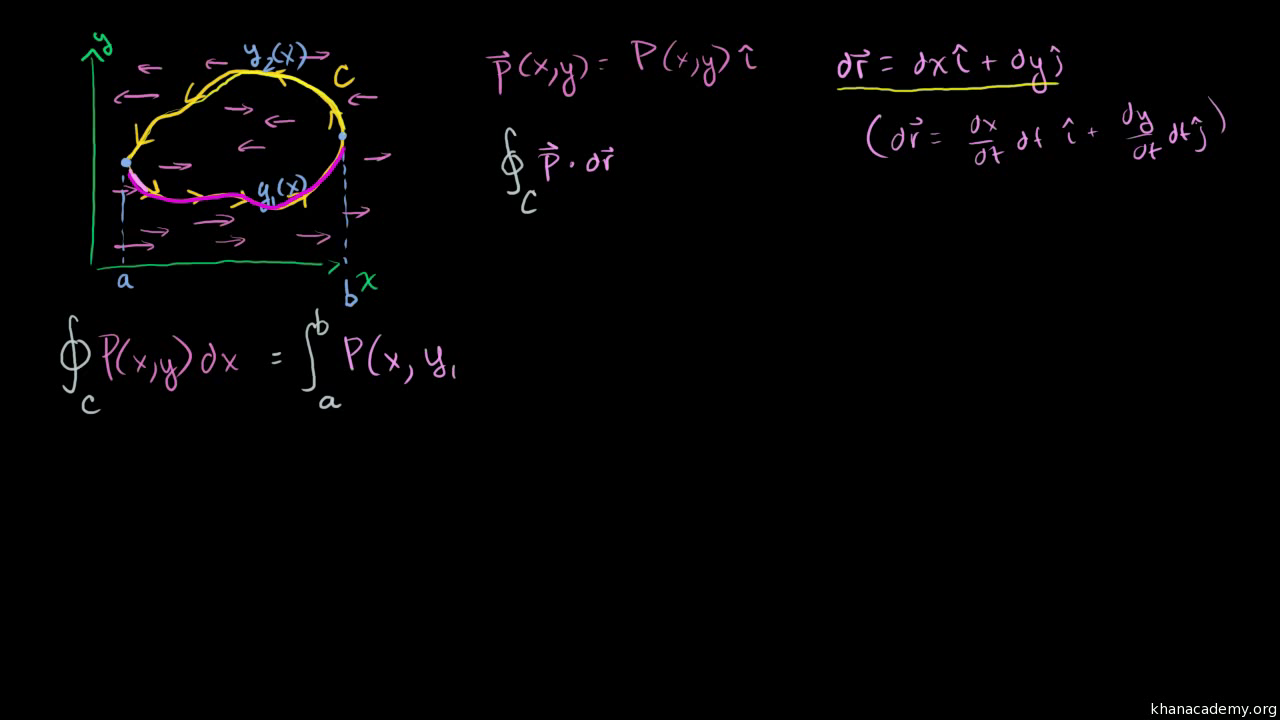 y
y₂(x)
C
y₁(x)
a
b
x
p⃗(x,y) = P(x,y) î
dr⃗ = dx î + dy ĵ
(dr⃗ = dx/dt dt î + dy/dt dt ĵ)
∮_C p⃗ · dr⃗
∮_C P(x,y) dx = ∫_a^b P(x, y₁
khanacademy.org